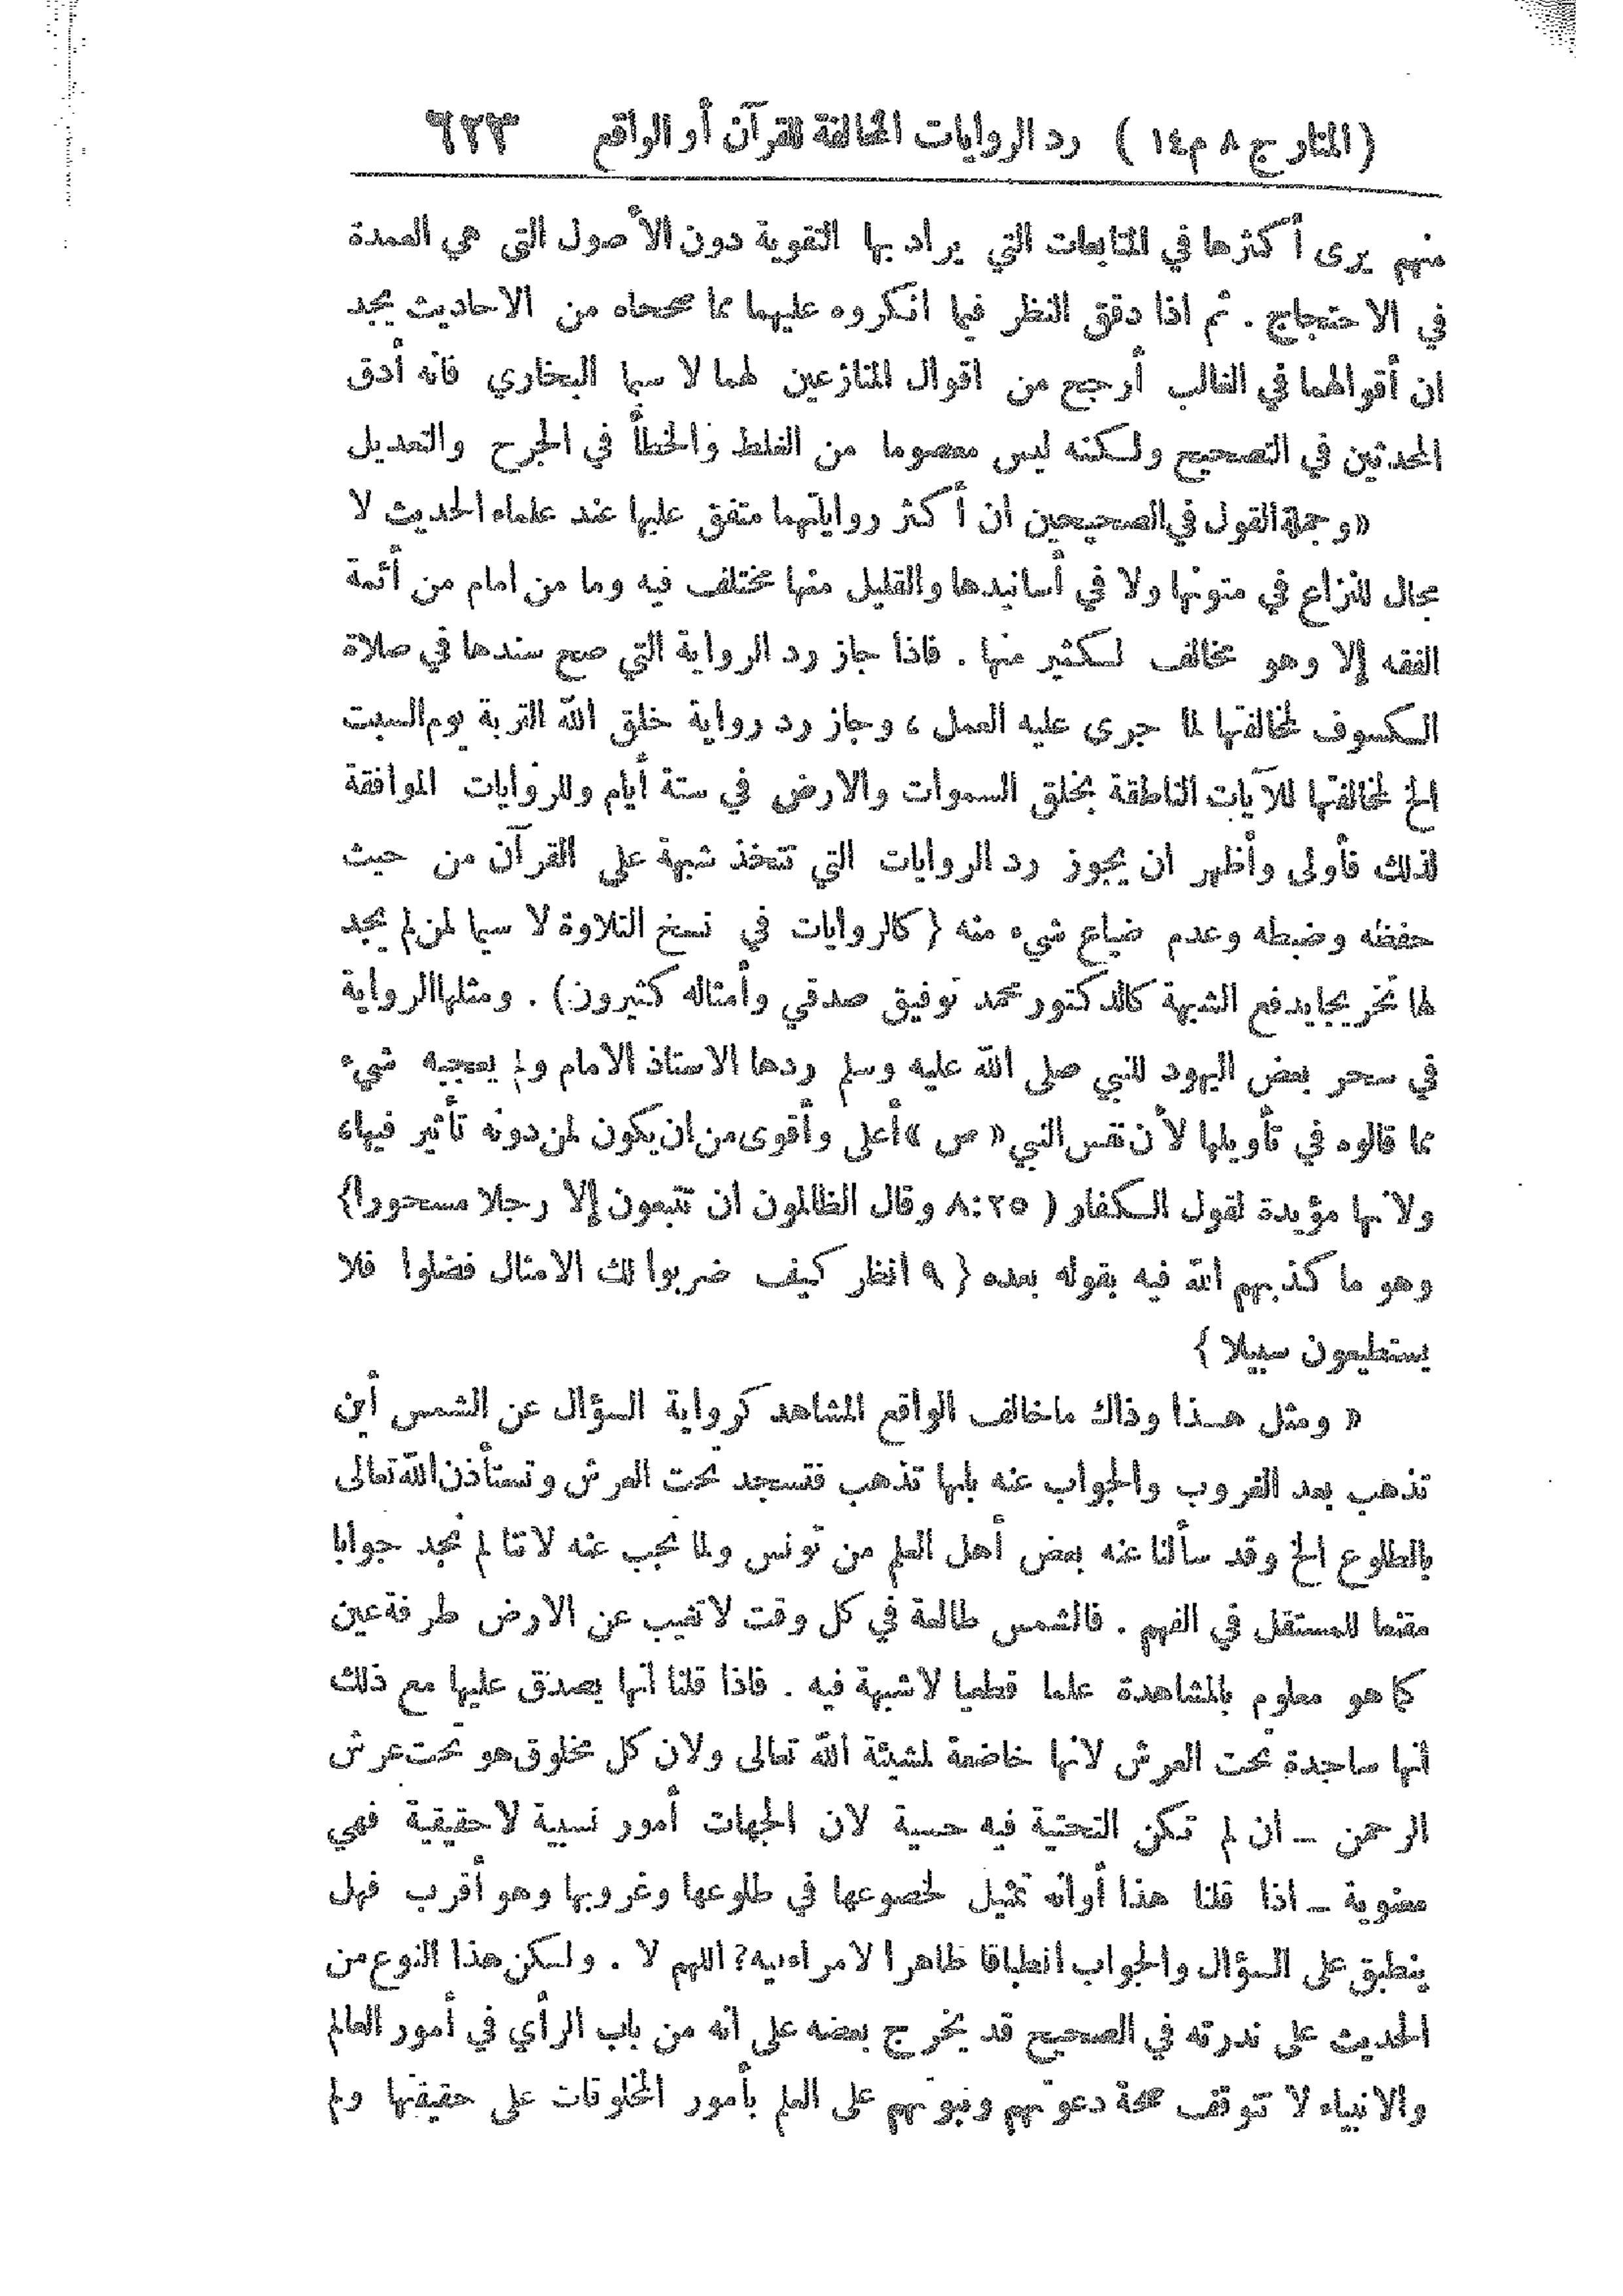 (المنار ج ٨ م ١٤ ) رد الروايات المخالفة للقرآن أو الواقع ٦٢٣
منهم يرى أكثرها في المتابعات التي يراد بها التقوية دون الأصول التي هي العمدة
في الاحتجاج . ثم اذا دقق النظر فيما انكروه عليهما مما صححاه من الاحاديث يجد
ان أقوالهما في الغالب أرجح من اقوال المنازعين لهما لا سيما البخاري فانه أدق
المحدثين في التصحيح ولكنه ليس معصوما من الغلط والخطأ في الجرح والتعديل
« وجملة القول في الصحيحين ان أكثر رواياتهما متفق عليها عند علماء الحديث لا
مجال للنزاع في متونها ولا في أسانيدها والقليل منها مختلف فيه وما من امام من أئمة
الفقه إلا وهو مخالف لكثير منها . فاذا جاز رد الرواية التي صح سندها في صلاة
الكسوف لمخالفتها لما جرى عليه العمل ، وجاز رد رواية خلق الله التربة يوم السبت
الخ لمخالفتها للآيات الناطقة بخلق السموات والارض في ستة أيام وللروايات الموافقة
لذلك فأولى وأظهر ان يجوز رد الروايات التي تتخذ شبهة على القرآن من حيث
حفظه وضبطه وعدم ضياع شيء منه (كالروايات في نسخ التلاوة لا سيما لمن لم يجد
لها تخريجا يدفع الشبهة كالدكتور محمد توفيق صدقي وأمثاله كثيرون) . ومثلها الرواية
في سحر بعض اليهود للنبي صلى الله عليه وسلم ردها الاستاذ الامام ولم يعجبه شيء
مما قالوه في تأويلها لأن نفس النبي « ص » أعلى وأقوى من ان يكون لمن دونه تأثير فيها،
ولانها مؤيدة لقول الكفار ( ٨:٢٥ وقال الظالمون ان تتبعون إلا رجلا مسحورا)
وهو ما كذبهم الله فيه بقوله بعده ( ٩ انظر كيف ضربوا لك الامثال فضلوا فلا
يستطيعون سبيلا )
« ومثل هذا وذاك ماخالف الواقع المشاهد كرواية السؤال عن الشمس أين
تذهب بعد الغروب والجواب عنه بانها تذهب فتسجد تحت العرش وتستأذن الله تعالى
بالطلوع الخ وقد سألنا عنه بعض أهل العلم من تونس ولما نجب عنه لاننا لم نجد جوابا
مقنعا للمستقل في الفهم . فالشمس طالعة في كل وقت لا تغيب عن الارض طرفة عين
كما هو معلوم بالمشاهدة علما قطعيا لا شبهة فيه . فاذا قلنا انها يصدق عليها مع ذلك
انها ساجدة تحت العرش لانها خاضعة لمشيئة الله تعالى ولان كل مخلوق هو تحت عرش
الرحمن ــ ان لم تكن التحتية فيه حسية لان الجهات أمور نسبية لا حقيقية فهي
معنوية ــ اذا قلنا هذا أو انه تمثيل لخضوعها في طلوعها وغروبها وهو أقرب فهل
ينطبق على السؤال والجواب انطباقا ظاهرا لا مراء فيه؟ اللهم لا . ولكن هذا النوع من
الحديث على ندرته في الصحيح قد يخرج بعضه على انه من باب الرأي في أمور العالم
والانبياء لا تتوقف صحة دعوتهم ونبوتهم على العلم بأمور المخلوقات على حقيقتها ولم